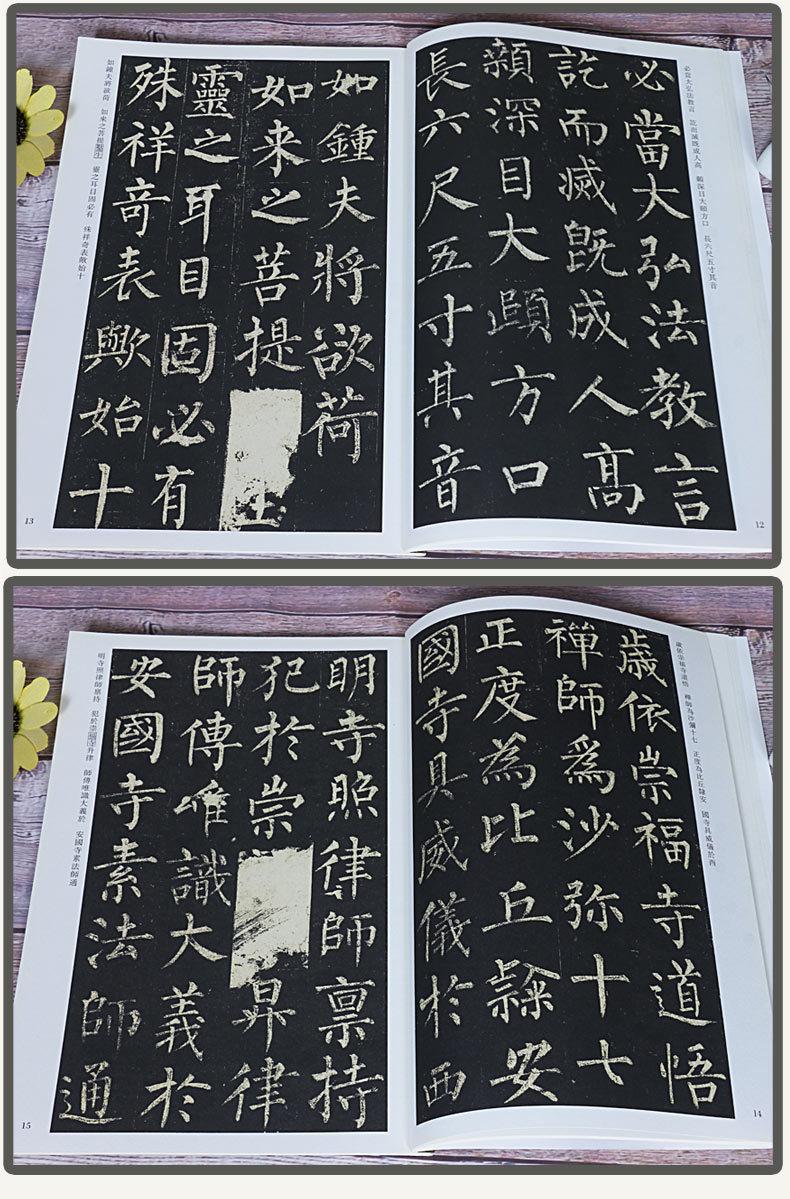 必當大弘法教言　訖而滅既成人高　顙深目大頤方口　長六尺五寸其音
必當大弘法教言
訖而滅旣成人髙
顙深目大頤方口
長六尺五寸其音
12
如鍾夫將欲荷
如来之菩提
靈之耳目固必有
殊祥奇表歟始十
如鐘夫將欲荷　如來之菩提鑿生　靈之耳目固必有　殊祥奇表歟始十
13
歲依崇福寺道悟　禪師為沙彌十七　正度為比丘隸安　國寺具威儀於西
歲依崇福寺道悟
禪師爲沙弥十七
正度為比丘隸安
國寺具威儀於西
14
明寺照律師禀持
犯於崇昇律
師傳唯識大義於
安國寺素法師通
明寺照律師稟持　犯於崇福寺升律　師傳唯識大義於　安國寺素法師通
15